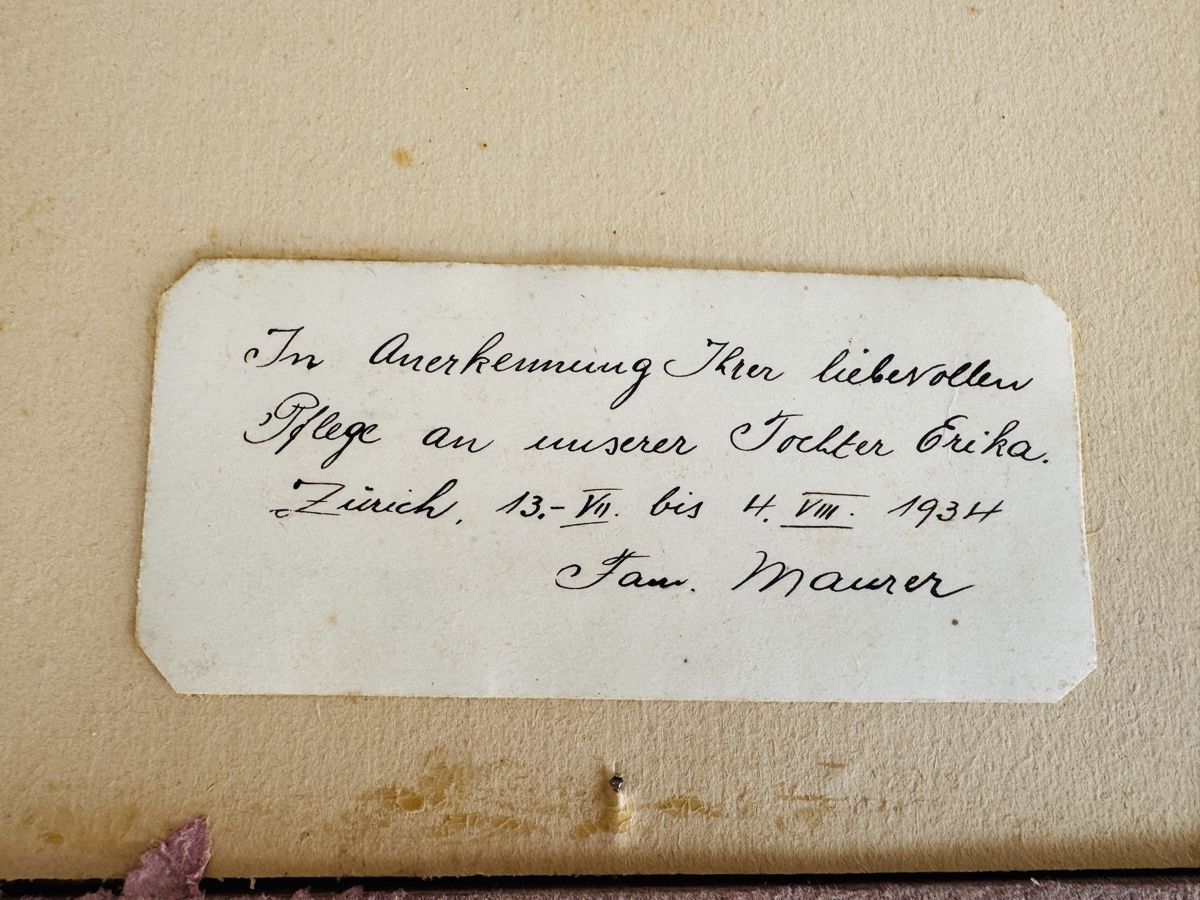 In Anerkennung Ihrer liebevollen
Pflege an unserer Tochter Erika.
Zürich, 13.- VII. bis 4. VIII. 1934
Fam. Maurer